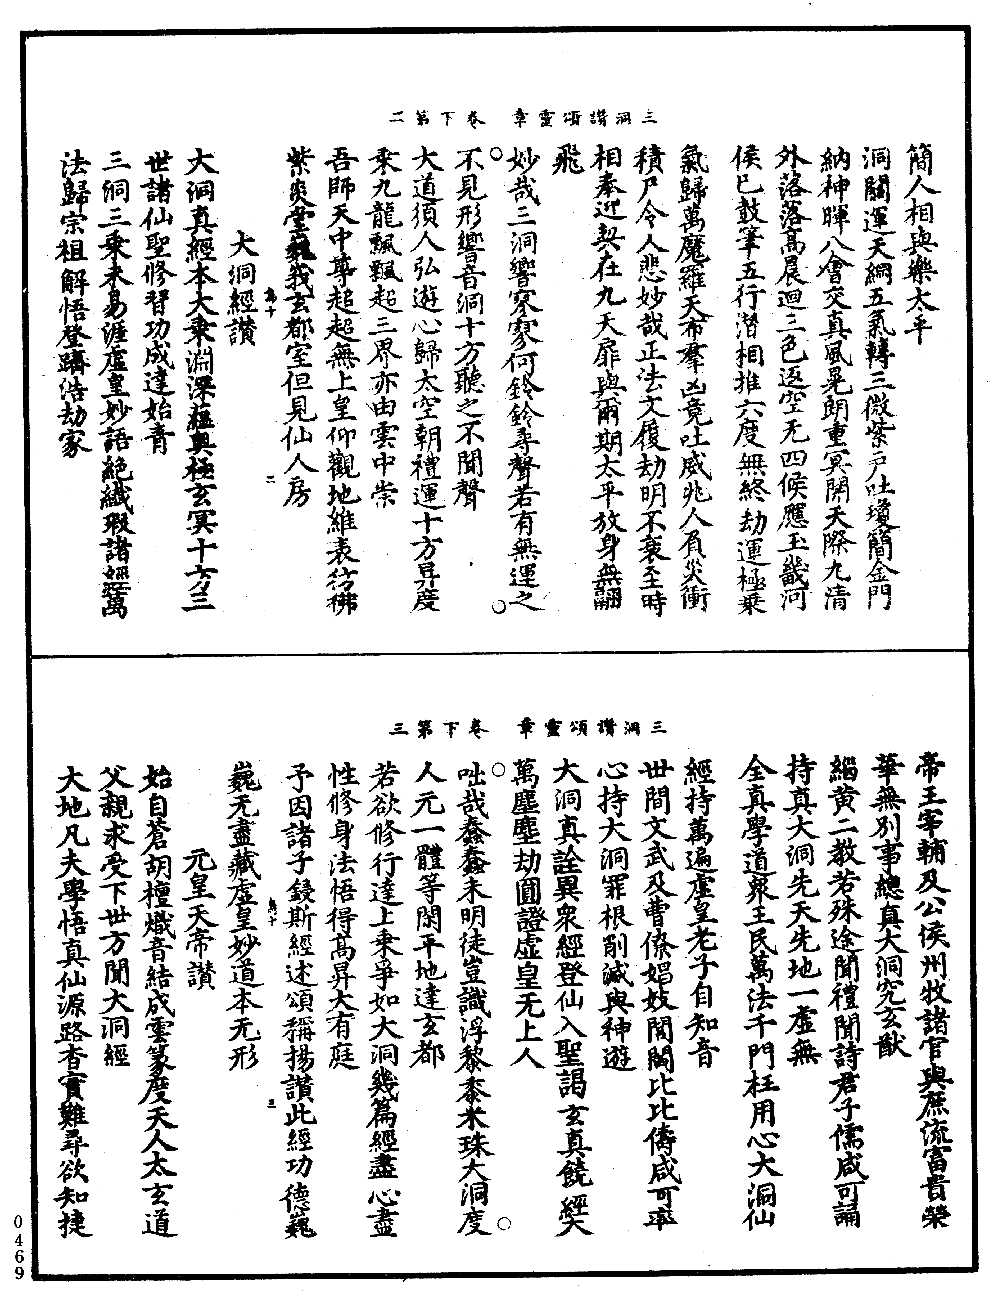 三洞讚頌靈章　卷下第二
簡人相與樂太平
洞關運天綱五氣轉三微紫戶吐瓊簡金門
納神暉八會交真風晃朗重冥開天際九清
外落落高晨迴三色返空无四候應玉畿河
侯已鼓筆五行潛相推六度無終劫運極乗
氣歸萬魔羅天布羣凶竟吐威兆人負災衝
積尸令人悲妙哉正法文復劫明不衰至時
相奉迎契在九天扉與爾期太平放身無翮
飛
妙哉三洞響寥寥何鈴鈴尋聲若有無運之
不見形響音洞十方聽之不聞聲
大道須人弘遊心歸太空朝禮運十方昇度
乗九龍飄飄超三界亦由雲中崇
吾師天中尊超超無上皇仰觀地維表彷彿
紫炎堂巍我玄都室但見仙人房
大洞經讚
二
大洞真經本大乗淵深蘊奧極玄冥十方三
世諸仙聖修習功成達始青
三洞三乗未易涯虛皇妙語絶纎瑕諸經萬
法歸宗祖解悟登躋浩劫家
三洞讚頌靈章　卷下第三
帝王宰輔及公侯州牧諸官與庶流富貴榮
華無別事總真大洞究玄猷
緇黃二教若殊途聞禮聞詩君子儒咸可誦
持真大洞先天先地一虛無
全真學道衆王民萬法千門枉用心大洞仙
經持萬遍虛皇老子自知音
世間文武及曹僚娼妓閭閻比比儔咸可率
心持大洞罪根削滅與神遊
大洞真詮異衆經登仙入聖謁玄真饒經大
萬塵塵劫圓證虛皇无上人
咄哉蠢蠢未明徒豈識浮黎黍米珠大洞度
人元一體等閑平地達玄都
若欲修行達上乗爭如大洞幾篇經盡心盡
性修身法悟得高昇大有庭
予因諸子録斯經述頌稱揚讃此經功德巍
三
巍无盡藏虛皇妙道本无形
元皇天帝讃
始自蒼胡檀熾音結成雲篆度天人太玄道
父親求受下世方聞大洞經
大地凡夫學悟真仙源路杳實難尋欲知捷
0469